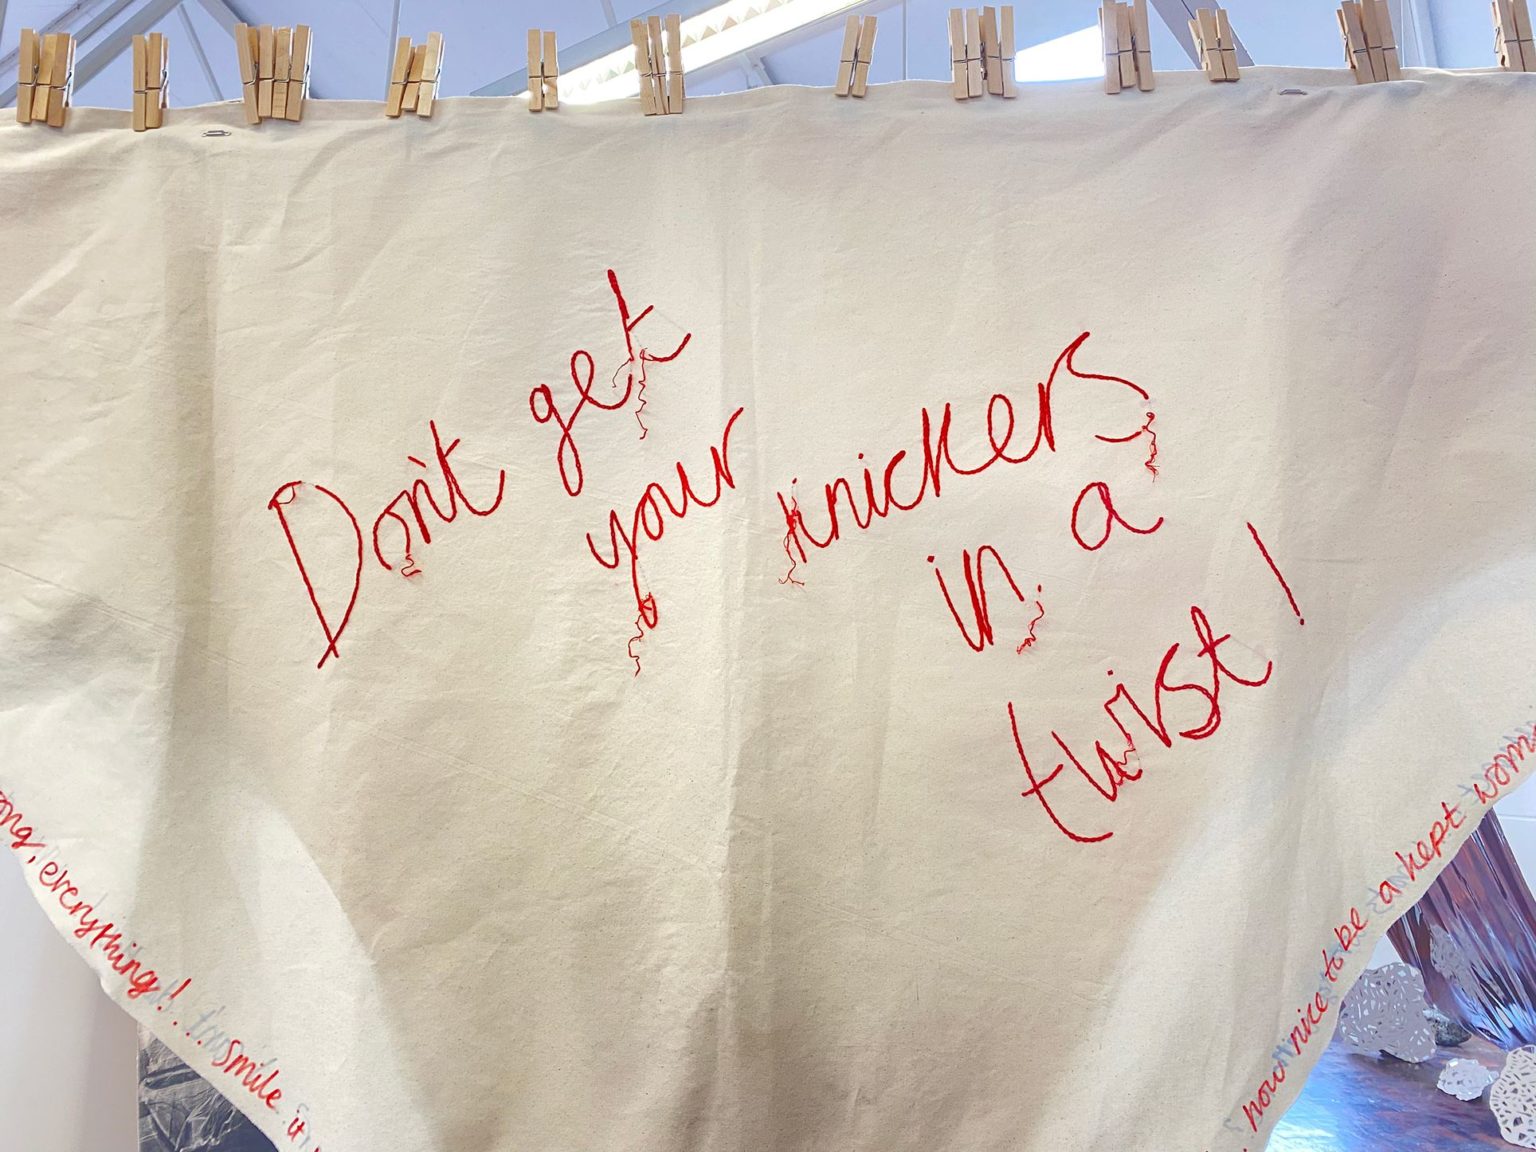 Don't get
your knickers
in a
twist!
everything!... Smile it
how nice to be a kept woma